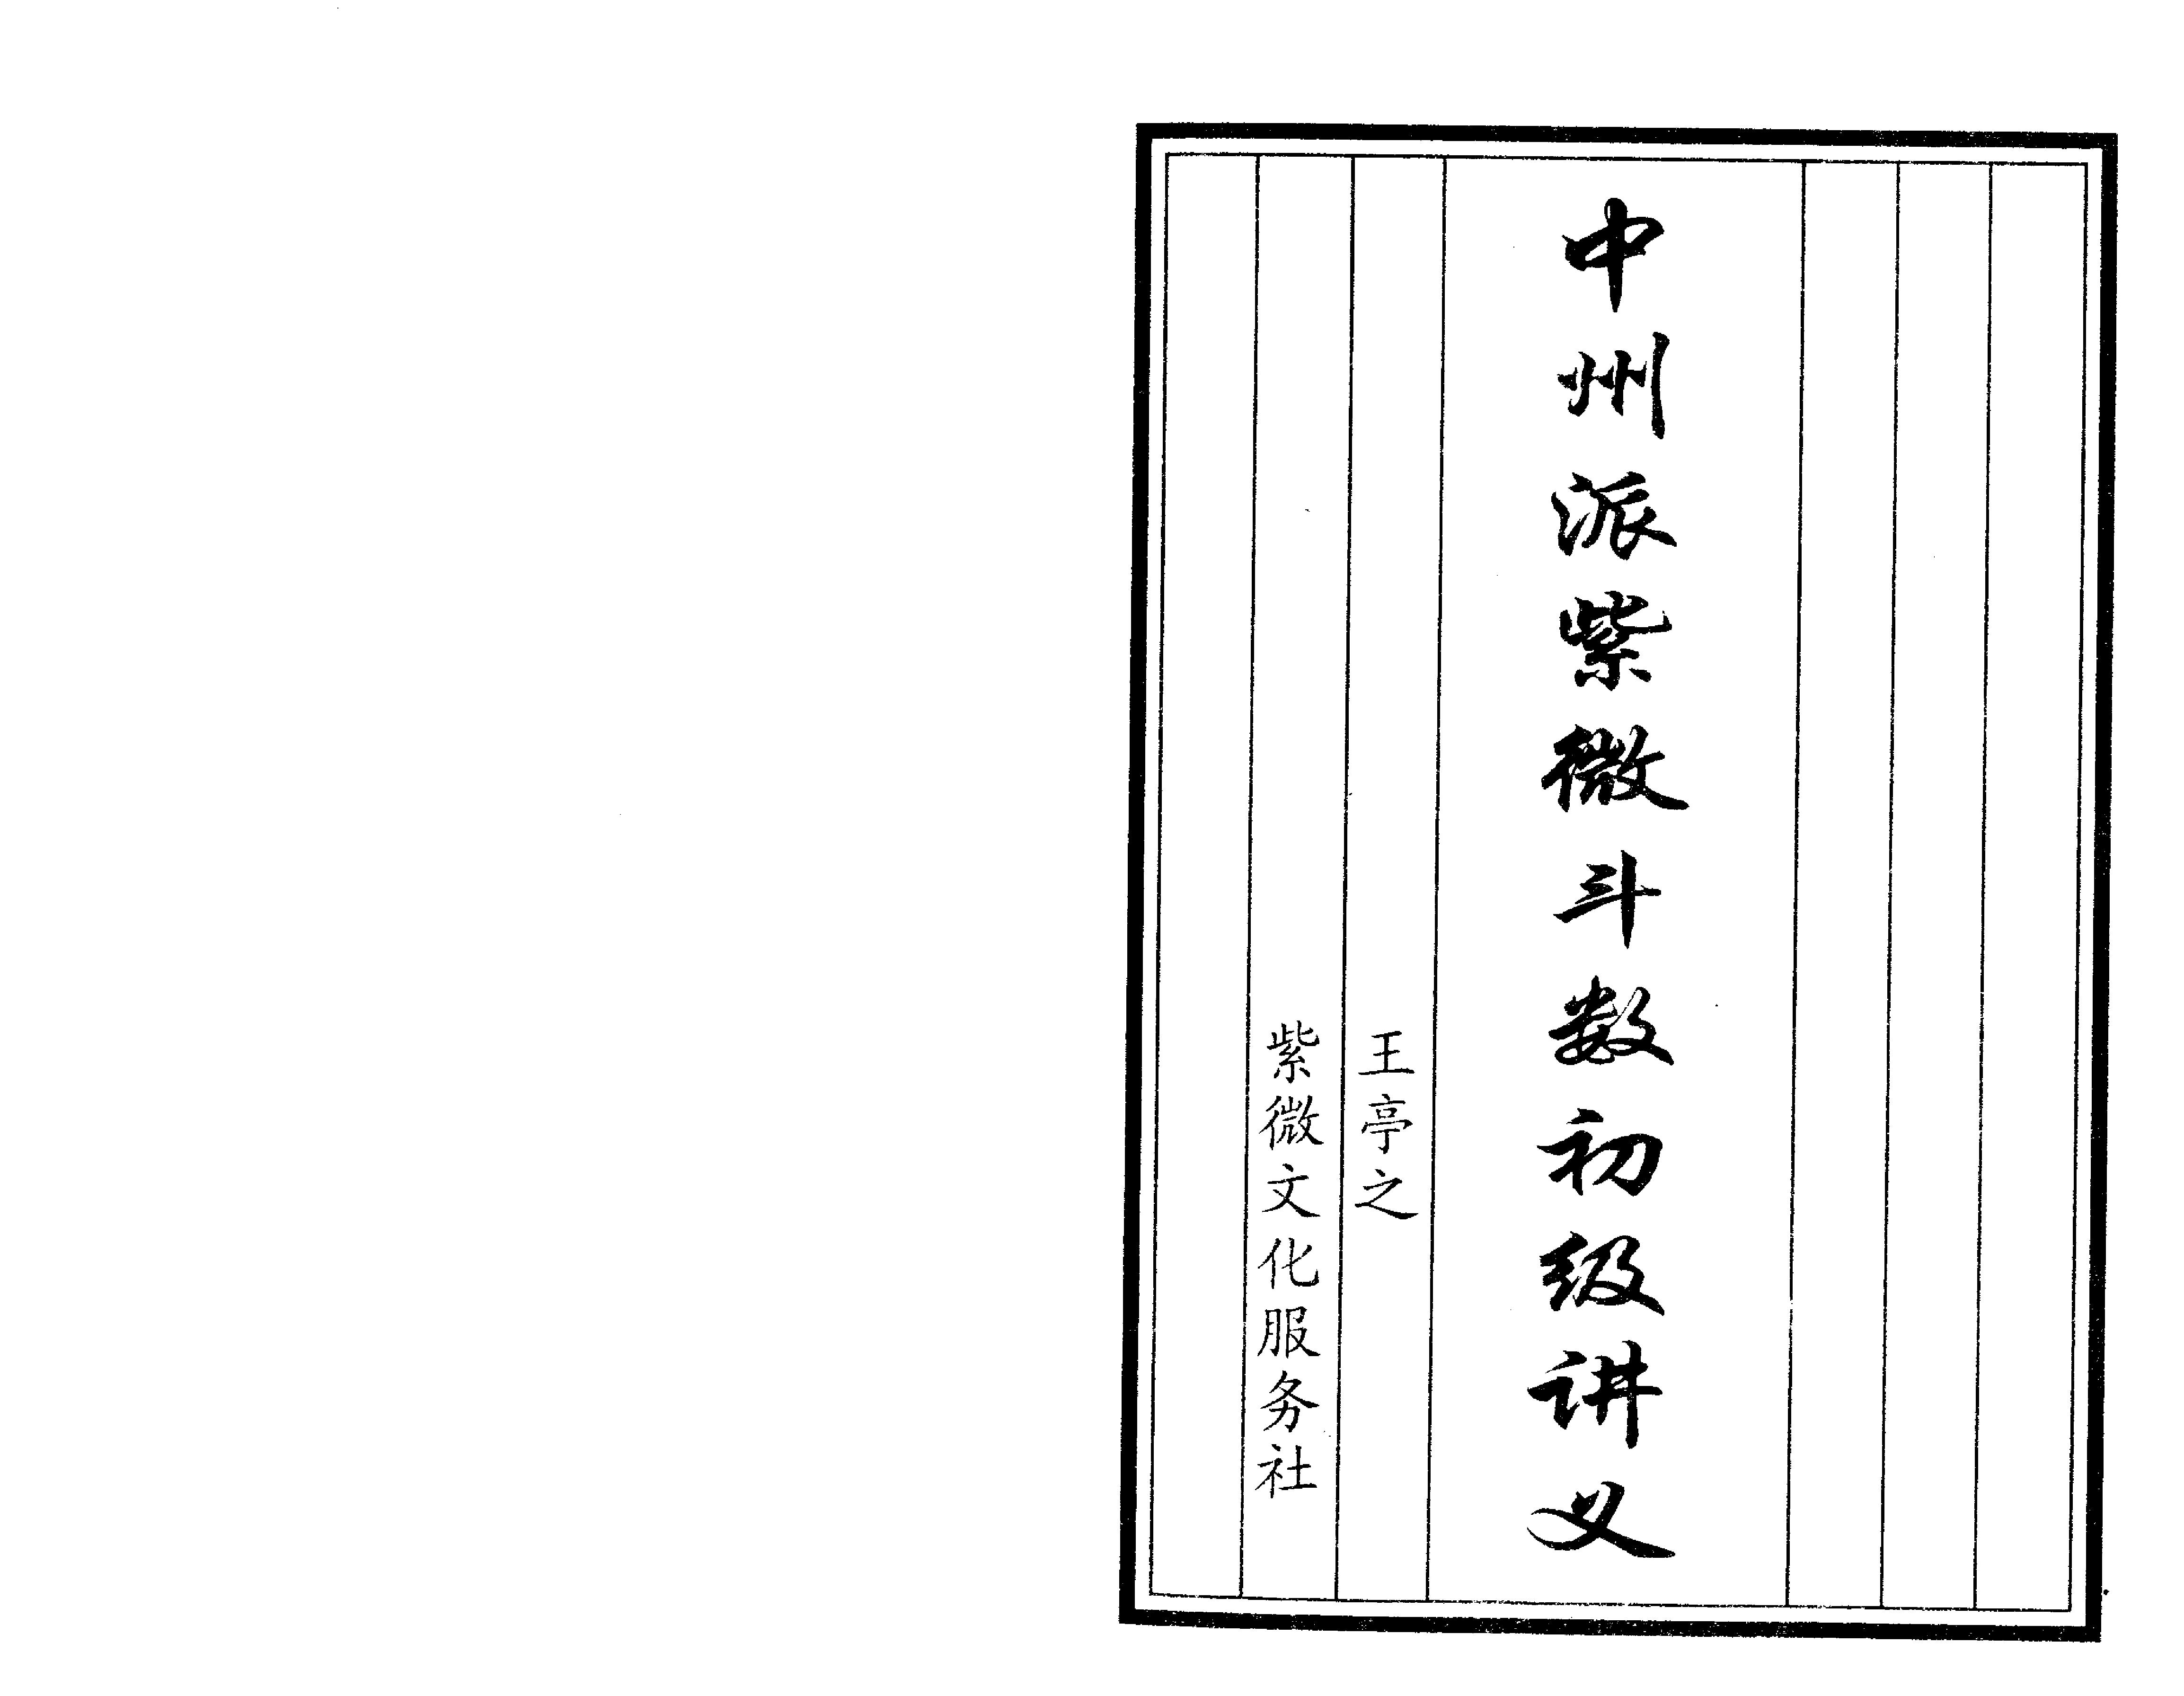 中州派紫微斗数初级讲义
王亭之
紫微文化服务社